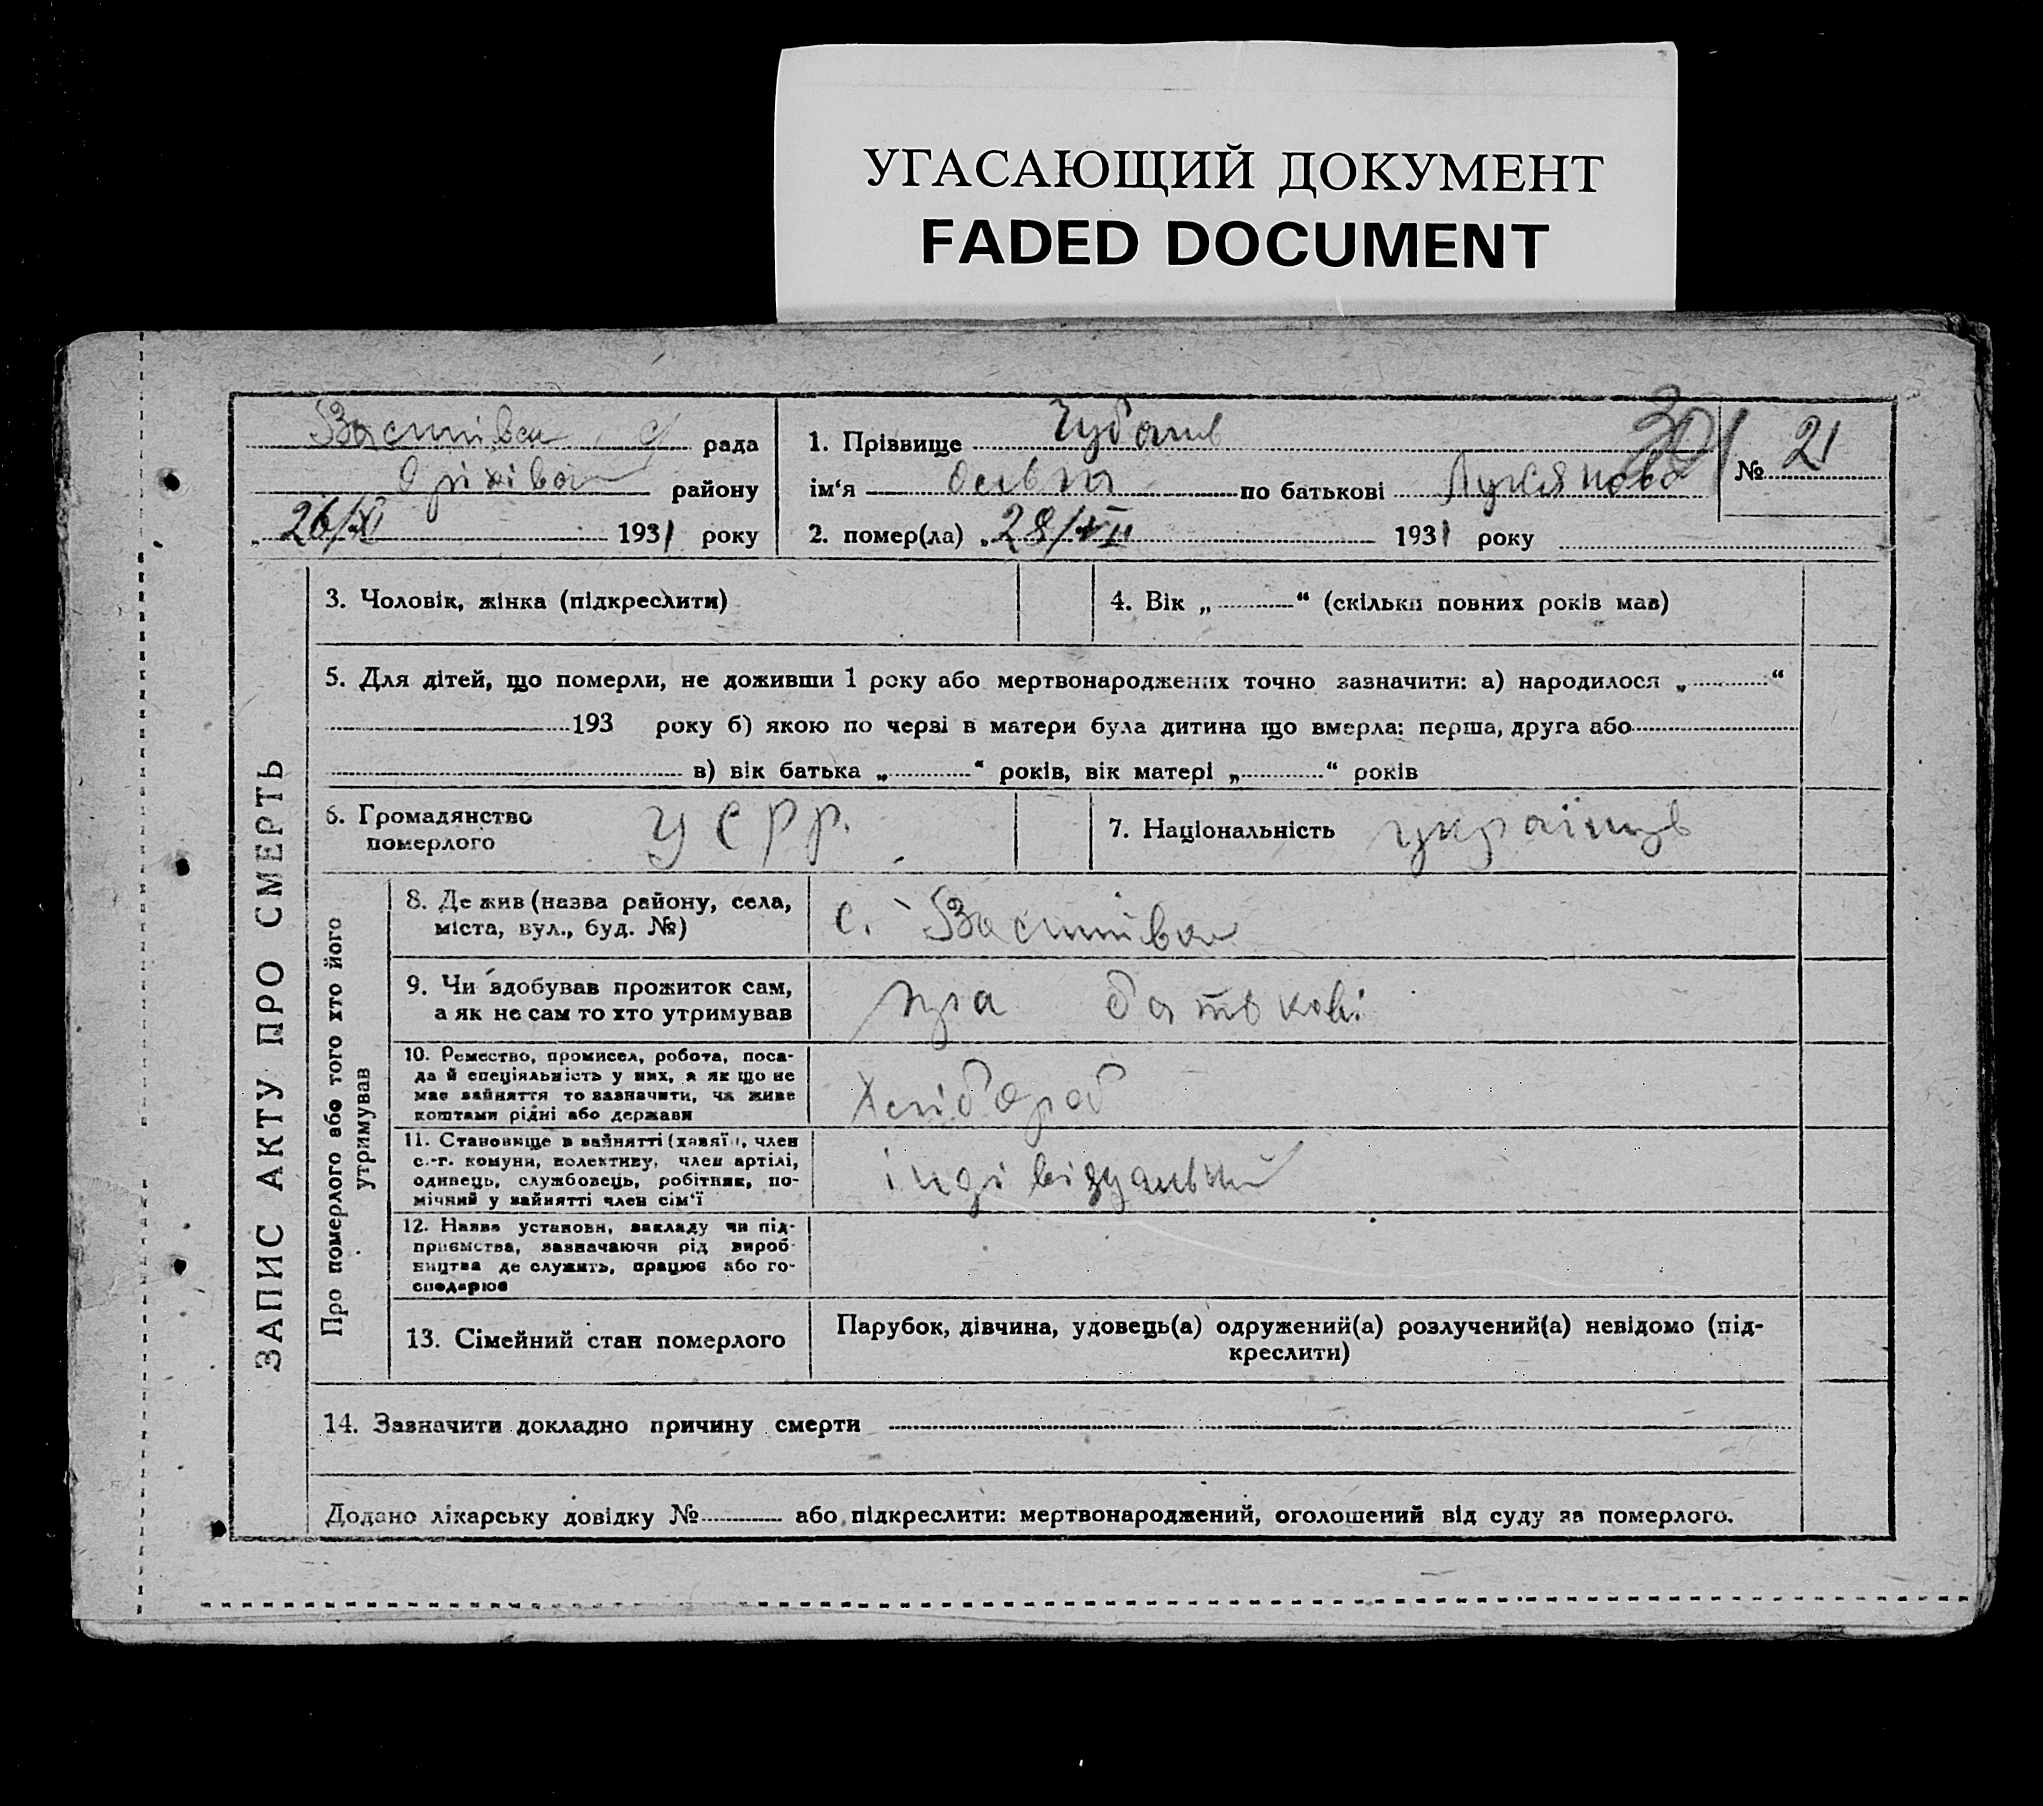 УГАСАЮЩИЙ ДОКУМЕНТ
FADED DOCUMENT
рада
району
„26/ 1931 року
1. Прізвище
301
№ 21
ім‘я по батькові
2. помер(ла) „28/VII 1931 року
3. Чоловік, жінка (підкреслити)
4. Вік „ “ (скільки повних років мав)
5. Для дітей, що померли, не доживши 1 року або мертвонароджених точно зазначити: а) народилося „ “
193 року б) якою по черзі в матери була дитина що вмерла: перша, друга або
в) вік батька „ “ років, вік матері „ “ років
6. Громадянство
померлого
УСРР.
7. Національність українць
ЗАПИС АКТУ ПРО СМЕРТЬ
Про померлого або того хто його
утримував
8. Де жив (назва району, села,
міста, вул., буд. №)
с.
9. Чи здобував прожиток сам,
а як не сам то хто утримував
при батькові
10. Ремество, промисел, робота, поса-
да й спеціяльність у них, а як що не
має зайняття то зазначити, чи живе
коштами рідні або держави
Хлібороб
11. Становище в зайнятті (хазяїн, член
с.-г. комуни, колективу, член артілі,
одинець, службовець, робітник, по-
мічний у зайнятті член сім‘ї
індівідуальний
12. Назва установи, закладу чи під-
приємства, зазначаючи рід вироб-
ництва де служить, працює або го-
сподарює
13. Сімейний стан померлого
Парубок, дівчина, удовець(а) одружений(а) розлучений(а) невідомо (під-
креслити)
14. Зазначити докладно причину смерти
Додано лікарську довідку № або підкреслити: мертвонароджений, оголошений від суду за померлого.